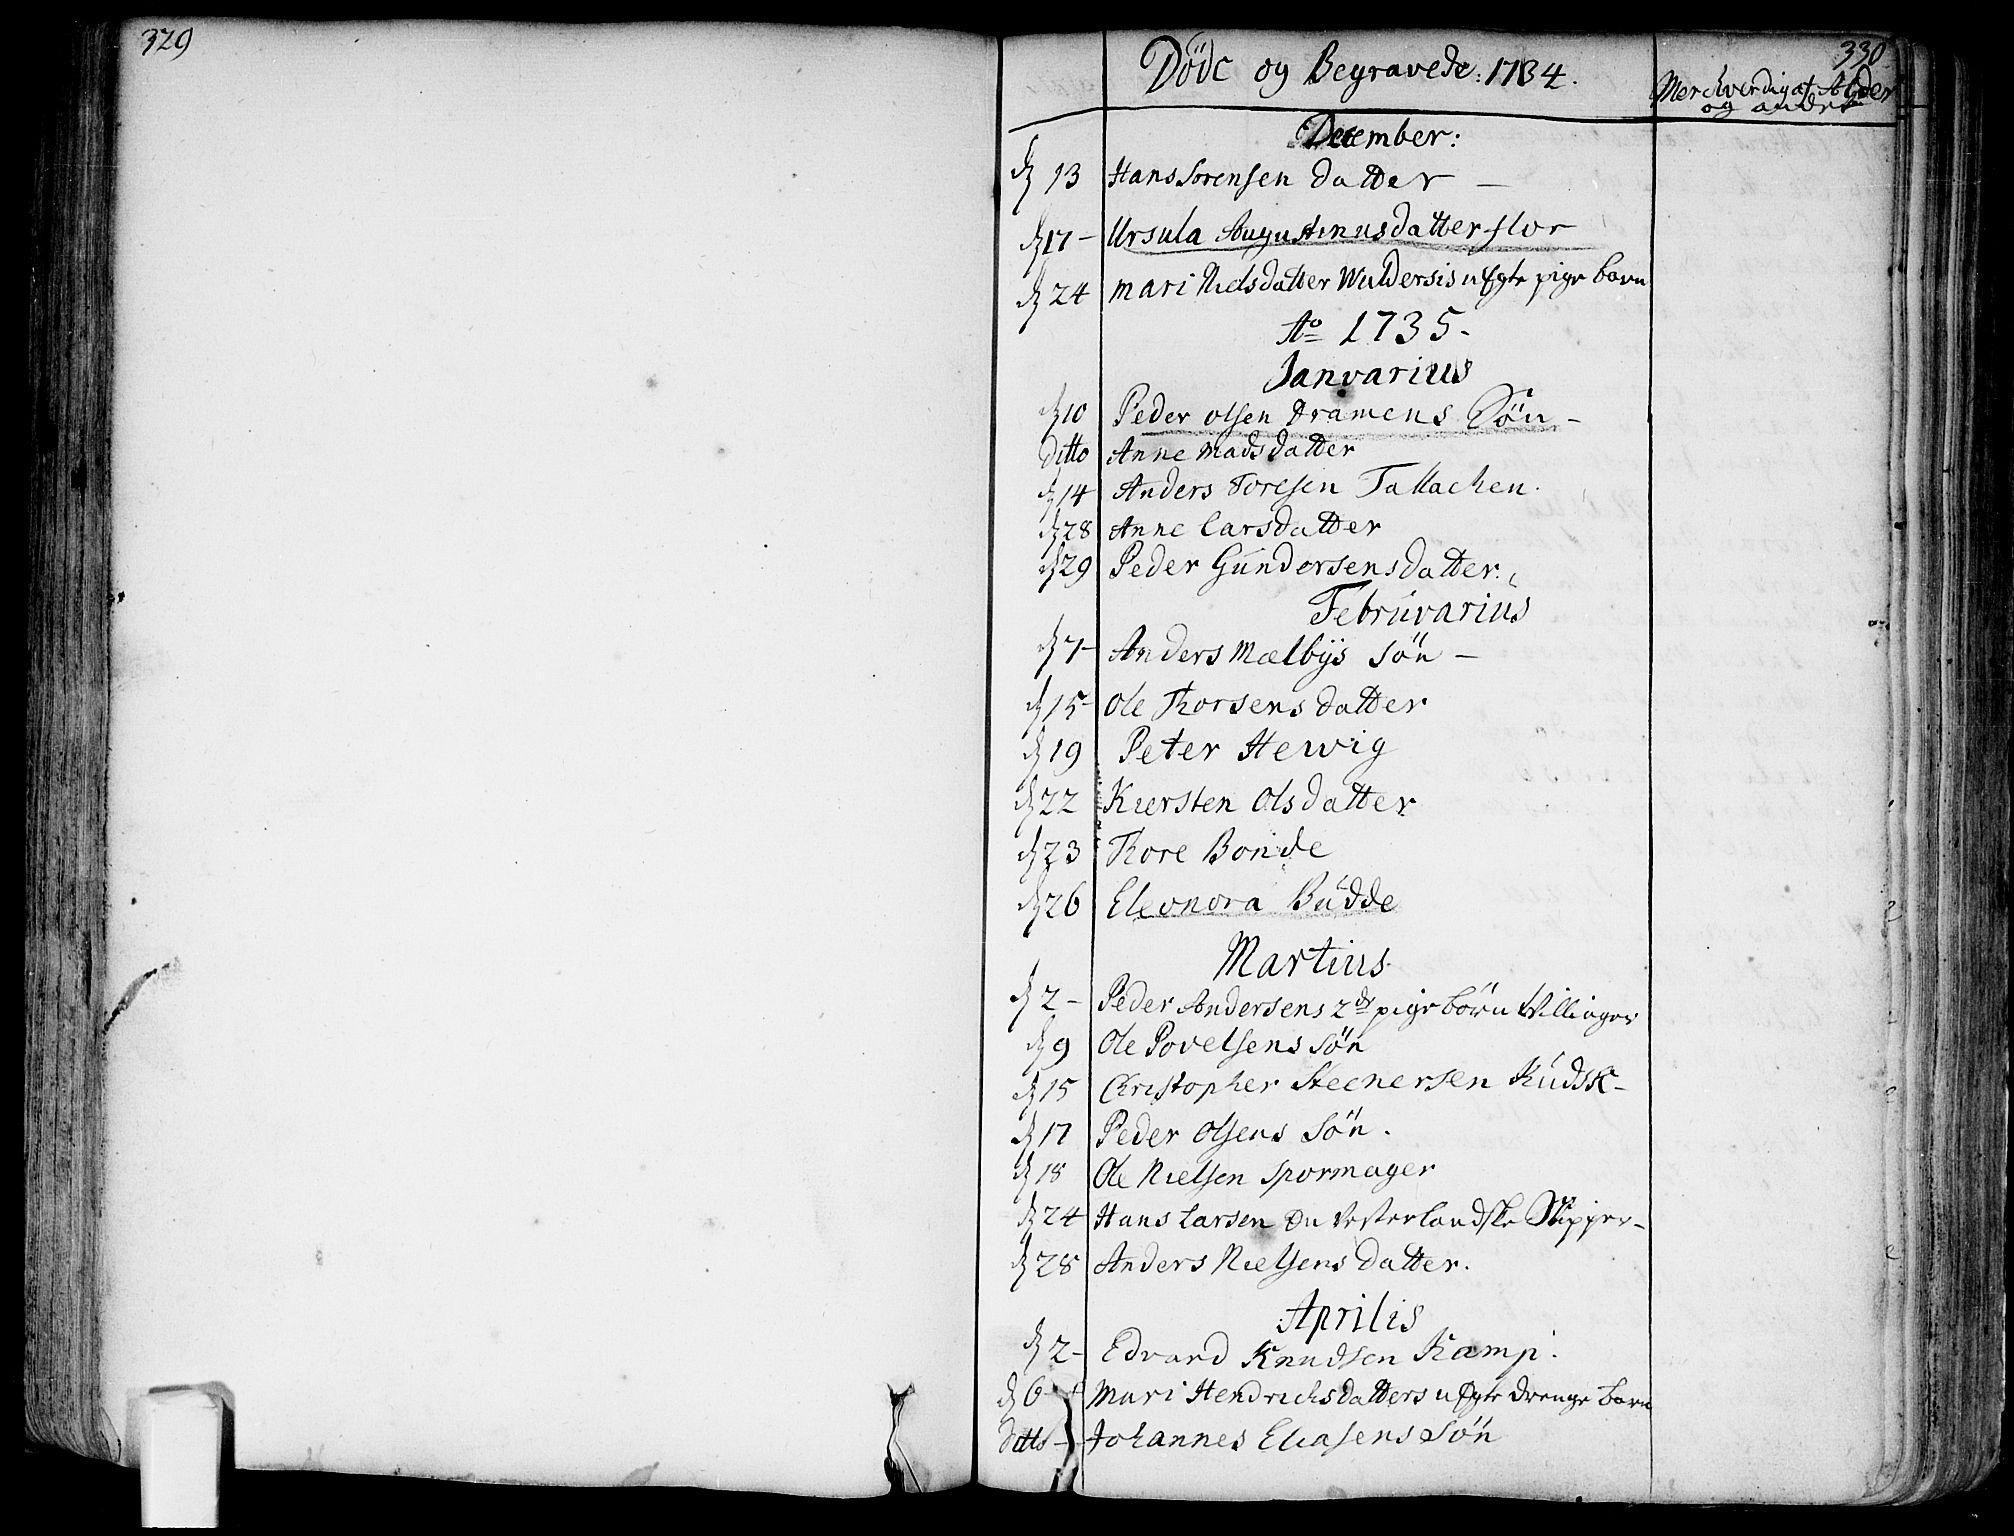 329
330
Döde og Begravede: 1734.
Merckverdig af Alder
og andet
December:
d 13 Hans Sorensen datter —
d 17 – Ursula Augustinusdatter flor
d 24 Mari Nielsdatter uEgte pige barn
Ao 1735.
Janvarius
d 10 Peder Olsen Dramens Sön –
ditto Anne Madsdatter
d 14 Anders Toresen Tallachen.
d 28 Anne Larsdatter
d 29 Peder Gundersens datter.
Februvarius
d 7 – Anders Mælbÿs Sön –
d 15 – Ole Thorsens datter
d 19 Peter Hewig
d 22 Kiersten Olsdatter
d 23 Thore Bonde
d 26 Eleonora Budde
Martius
d 2 – Peder Andersens 2de pige börn tvillinger
d 9 Ole Povelsens Sön
d 15 Christopher Steenersen Kudsk –
d 17 Peder Olsens Sön.
d 18 Ole Nielsen Spormager
d 24 Hans Larsen En Vesterlandske Skipper –
d 28 Anders Nielsens datter.
Aprilis
d 2 – Edvard Knudsen Kamp.
d 6 – Mari Hendrichsdatters uEgte drenge barn
ditto – Johannes Eliasens Sön